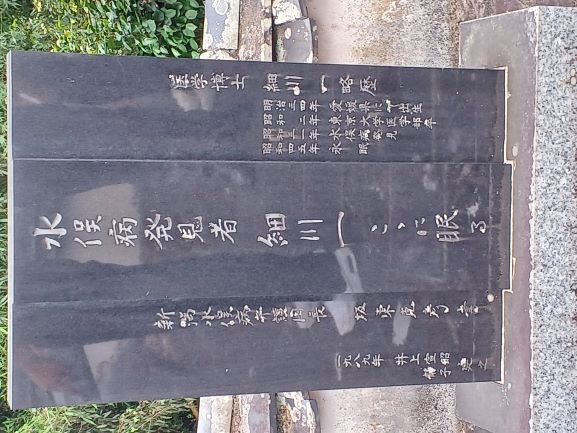 医学博士 細川一 略歴
明治三四年 愛媛県に出生
昭和二年 東京大学医学部卒
昭和三一年 水俣病発見
昭和四五年 永眠
水俣病発見者 細川一 こゝに眠る
新潟水俣病弁護団長 坂東克彦 書
一九八九年 井上宣昭 建之